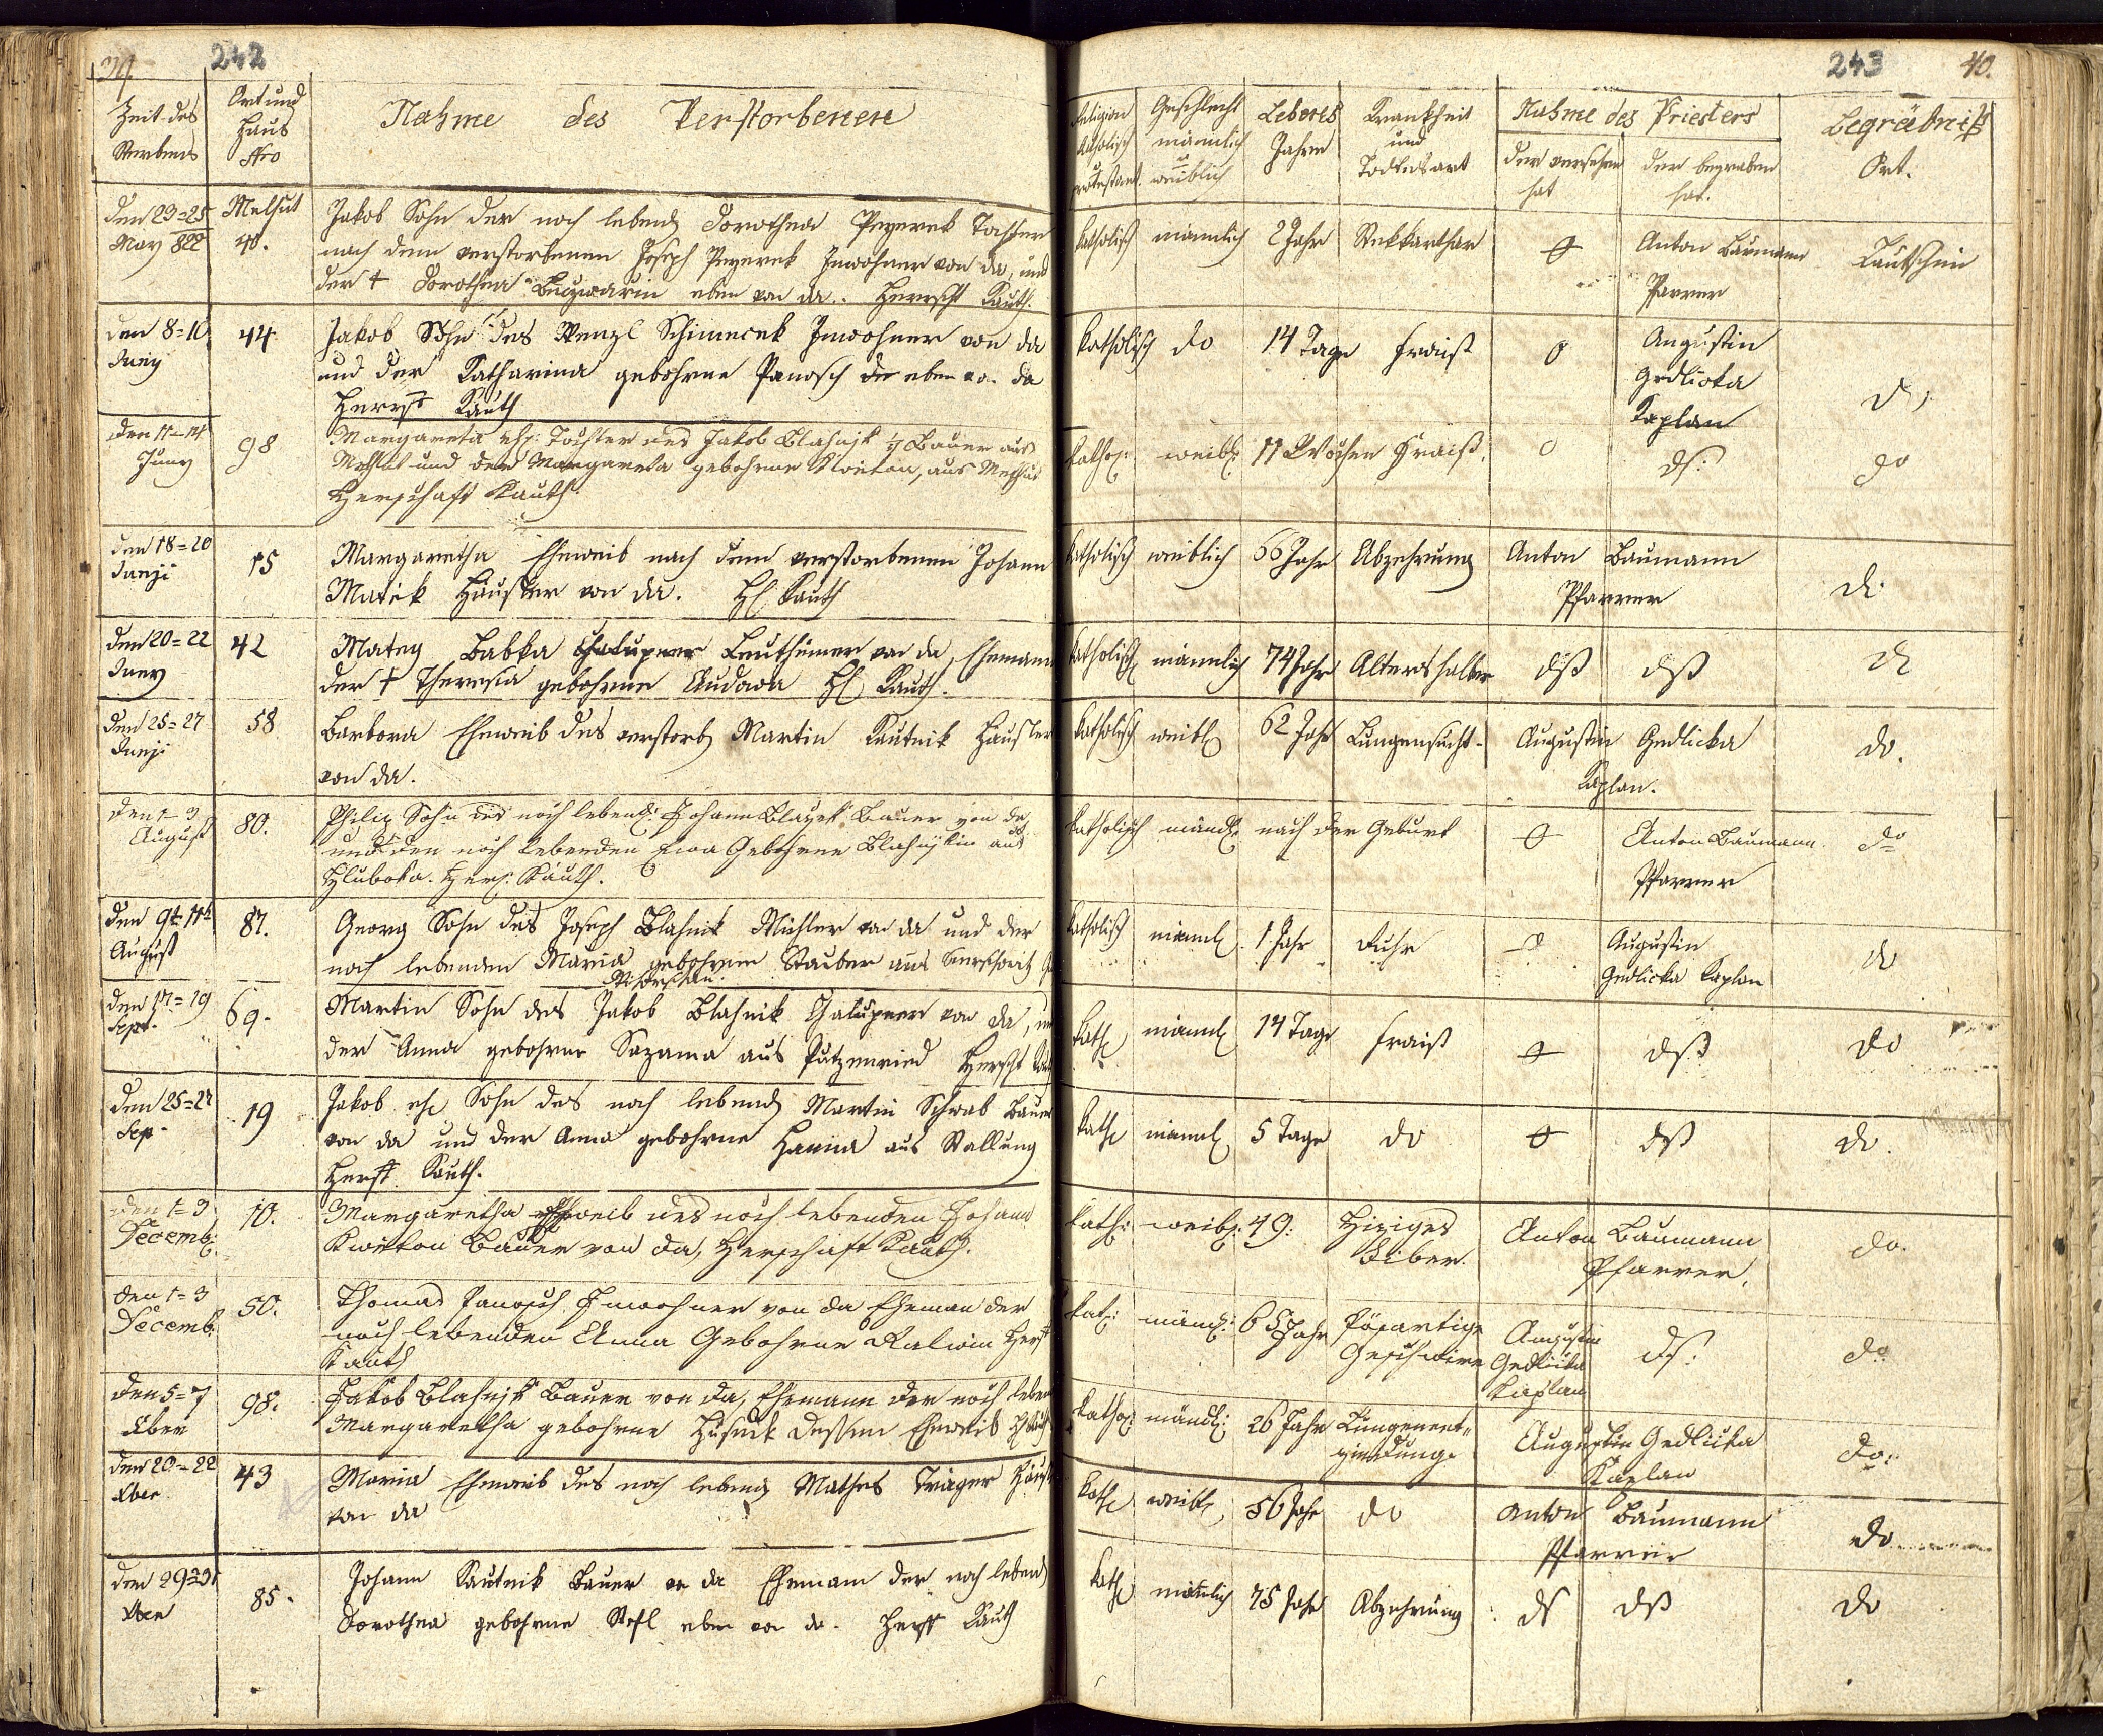 39. 242
Zeit des Sterbens
Ort und Haus Nro
Nahme des Verstorbenen
Religion katholisch protestant.
Geschlecht männlich weiblich
Lebens Jahre
Krankheit und Todtesart
Nahme des Priesters
der versehen hat
der begraben hat.
Begräbniß Ort.
243 40.
den 23=25 May 822
Melhut 40.
Jakob Sohn der noch lebend Dorothea Peyerek Tochter
nach dem verstorbenen Joseph Peyerek Inwohner von da, und
der † Dorothea eben von da. Herrscht Kauth.
katholisch männlich 2 Jahr Stekkarthar 0 Anton Baumann Pfarrer Lautschim
den 8=10 Juny
44
Jakob Sohn des Wenzl Schimecek Inwohner von da
und der Katharina gebohrne Panosch eben von da
Herrst Kauth
katholisch do 14 Tage Fraiß 0 Augustin Gedlicka Kaplan do
den 11=14 Juny
98
Margareta ehl: Tochter des Jakob Blahnjk Bauer aus
Melhut und der Margareta gebohrne Kweton, aus Melhut
Herrschaft Kauth.
kathol: weibl: 11 Wochen Fraiß. 0 ds: do
den 18=20 Junji
15
Margaretha Eheweib nach dem verstorbenen Johann
Matek Häusler von da. Hl Kauth
katholisch weiblich 66 Jahr Abzehrung Anton Baumann Pfarrer do
den 20=22 Juny
42
Matey Babka Chalupner von da, Ehemann
der † Theresia gebohrne Audada Hl Kauth.
katholisch männlich 74 Jahr Altershalber dß dß do
den 25=27 Junji
58
Barbora Eheweib des verstorb Martin Kautnik Häusler
von da.
katholisch weibl 62 Jahr Lungensucht. Augustin Gedlicka Kaplan. do.
den 1=3 August
80.
Philip Sohn des noch lebend: Johann Blazek Bauer von da
und der noch lebenden Ewa Gebohrne Blahnjkin aus
Hluboka. Hersch: Kauth.
katholisch mändl: nach der Geburt 0 Anton Baumann Pfarrer do
den 9t 11t August
87.
Georg Sohn des Joseph Blahnik Müchler von da und der
noch lebenden Maria gebohrne Stauber aus
katholisch männl. 1 Jahr Ruhr 0 Augustin Gedlicka Kaplan do
den 17=19 Sept.
69.
Martin Sohn des Jakob Blahnik Chalupner von da, und
der Anna gebohrne Sazama aus Putzenried Herscht
kath männl 14 Tage Fraiß 0 dß do
den 25=27 Sep.
19
Jakob ehl Sohn des noch lebend Martin Schwab Bauer
von da und der Anna gebohrne Hanna aus Stallung
Herrst. Kauth.
kath männl 5 Tage do 0 dß do.
den 1=3 Decemb:
10.
Margaretha Eheweib des noch lebenden Johann
Kweton Bauer von da, Herschaft Kauth.
kath: weibl: 49: Hiziges Fiber. Anton Baumann Pfarrer. do.
den 1=3 Decemb:
50.
Thomas Panosch Inwohner von da Eheman der
noch lebenden Anna Gebohrne Kalwin Herst
Kauth
kat: mändl: 65 Jahr Pösartige Geschwire Augustin Gedlicka Kaplan ds: do
den 5=7 Xber
98.
Jakob Blahnjk Bauer von da, Ehemann der noch leben
Margaretha gebohrne dessen Eheweib
kathol: mändl: 26 Jahr Lungenentzindung. Augustin Gedlicka Kaplan do:
den 20=22 Xber
43
Maria Eheweib des noch lebend Mathes Träger Häusl
von da
kath weibl, 56 Jahr do Anton Baumann Pfarrer do
den 29=31 Xber
85.
Johann Kautnik Bauer von da Ehemann der noch lebend
Dorothea gebohrne eben von da. Herst Kauth
kath männlich 75 Jahr Abzehrung ds dß do